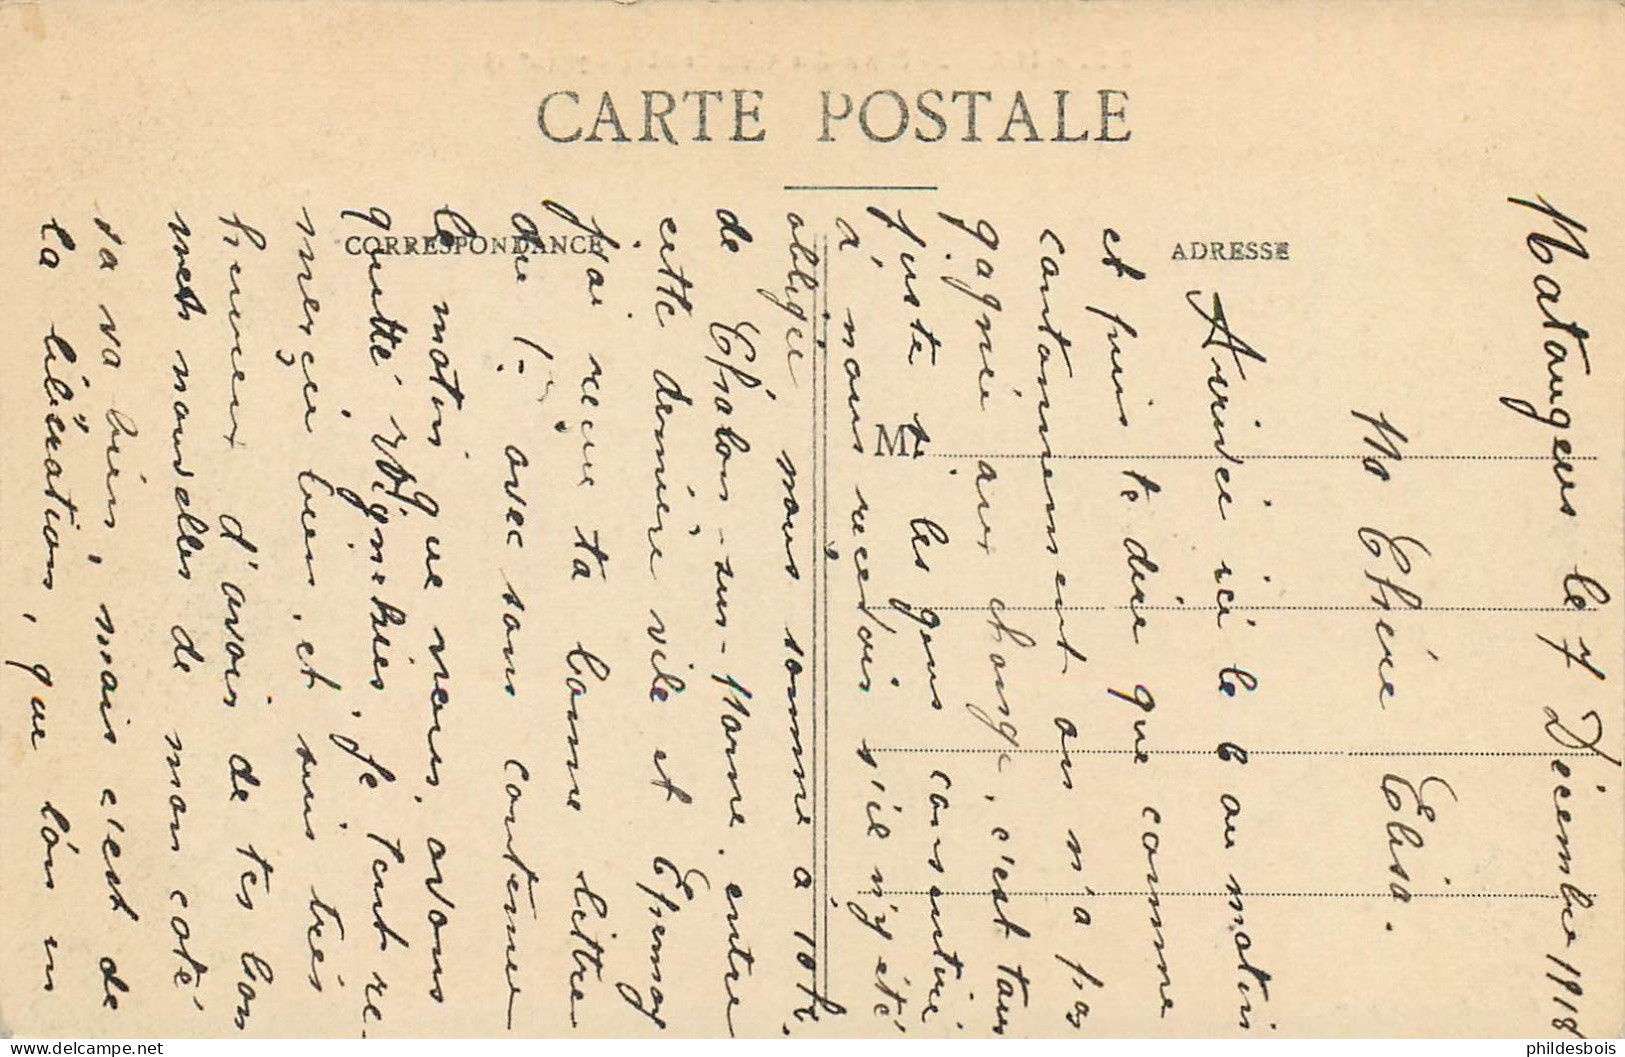 CARTE POSTALE
CORRESPONDANCE
ADRESSE
M
Matougues le 7 Décembre 1918
Ma Chérie Elisa.
Arrivée ici le 6 au matin
et puis te dire que comme
cantonnement on n'a pas
gagnée au change, c'est tous
juste si les gens consentire
à nous recevoir s'il n'y été
obligée nous somme a 10 K.
de Châlons-sur-Marne. entre
cette dernière vile et Epernay
j'ai reçue ta bonne lettre
du 1. avec sons contenue
le matin que nous avons
quitté Vignehies, je tent re-
merçie bien, et suis très
heureux d'avois de tes bon
nes nouvelles de mon coté
sa va bien, mais c'est de
la libération, que l'on en
phildesbois